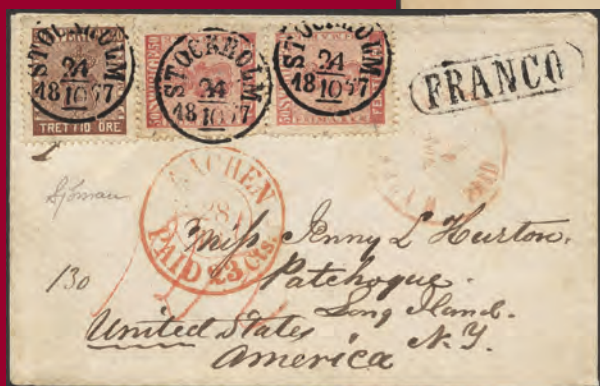 STOCKHOLM
24
10
1867
TRETTIO ÖRE
STOCKHOLM
24
10
1867
STOCKHOLM
24
10
1867
FRANCO
AACHEN
28
PAID 23 Cts.
130
Miss Jenny L Hurton.
Patchogue.
Long Island.
United States N.Y.
America